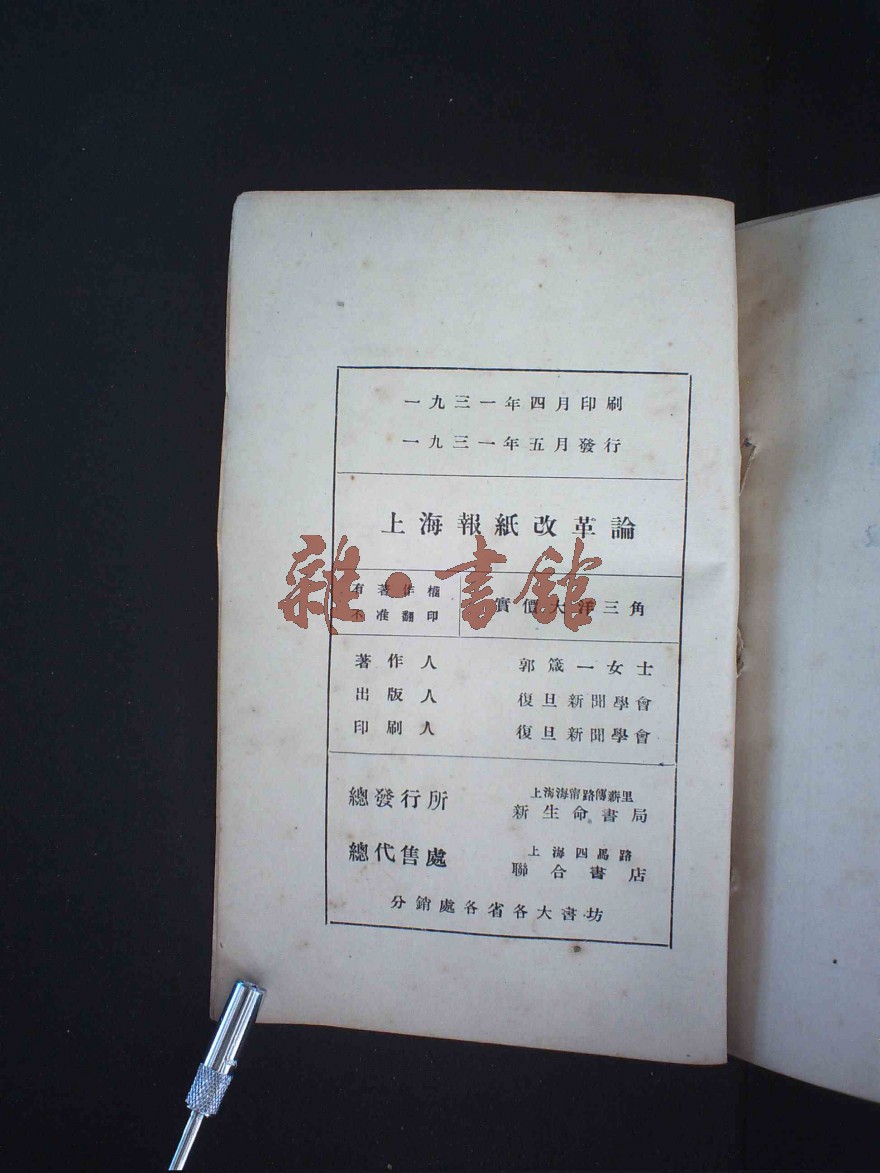 一九三一年四月印刷
一九三一年五月發行
上海報紙改革論
有著作權
不准翻印
實價大洋三角
著作人 郭箴一女士
出版人 復旦新聞學會
印刷人 復旦新聞學會
總發行所 上海海甯路傳薪里
新生命書局
總代售處 上海四馬路
聯合書店
分銷處各省各大書坊
雜·書館